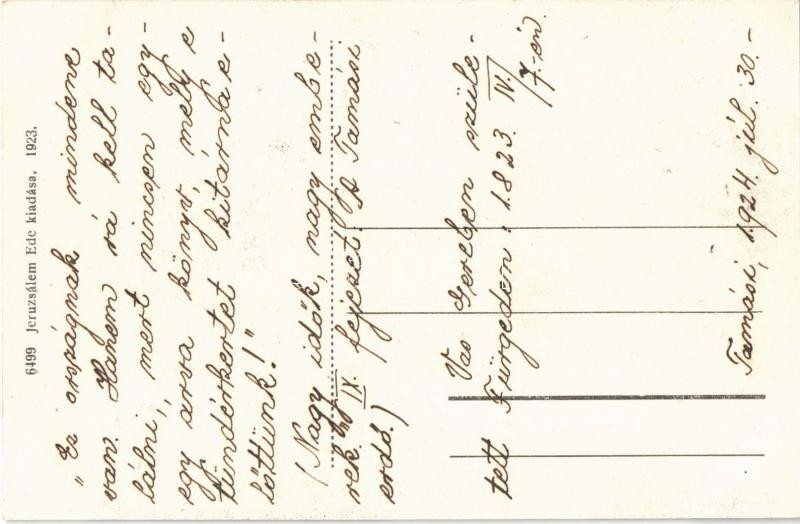 6499 Jeruzsálem Ede kiadása, 1923.
„Ez országnak mindene
van. Hanem rá kell ta-
lálni," mert nincsen egy-
egy árva könyv, mely e
tündérkertet kitárná e-
lőttünk!"
(Nagy idők, nagy embe-
rek. IX. fejezet. A Tamási
erdő.)
Vas Gereben szüle-
tett Fürgeden: 1823. IV/7.-én.
Tamási, 1924. júl. 30.-